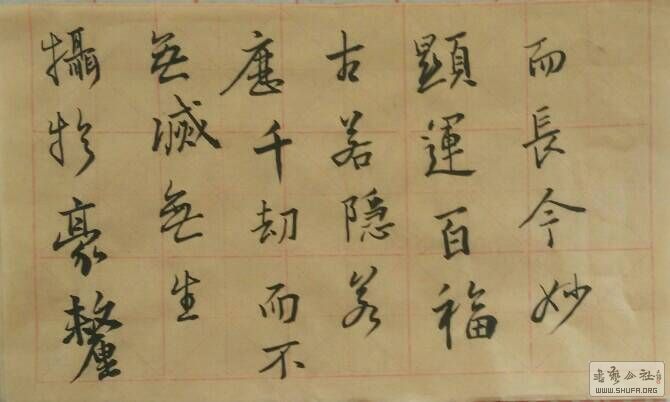 攝於豪釐
無滅無生
歷千劫而不
古若隱若
顯運百福
而長今妙
書藝公社
WWW.SHUFA.ORG